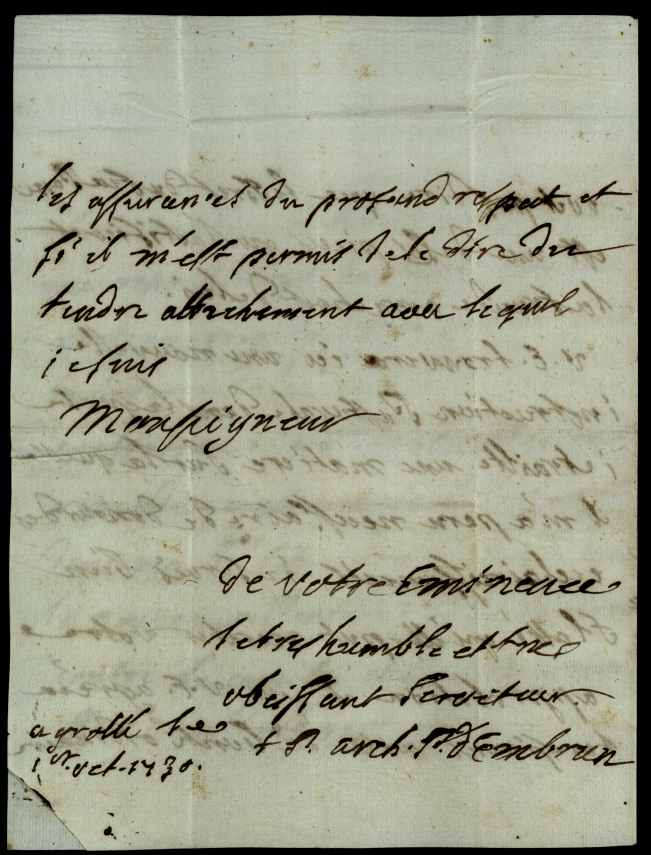 les assurances du profond respect et
s'il m'est permis de le dire du
tendre attachement avec lequel
je suis
Monseigneur
de votre Eminence
le tres humble et tres
obeissant serviteur
+ P. arch. P. d'Embrun
a grolle le
1er. oct. 1730.